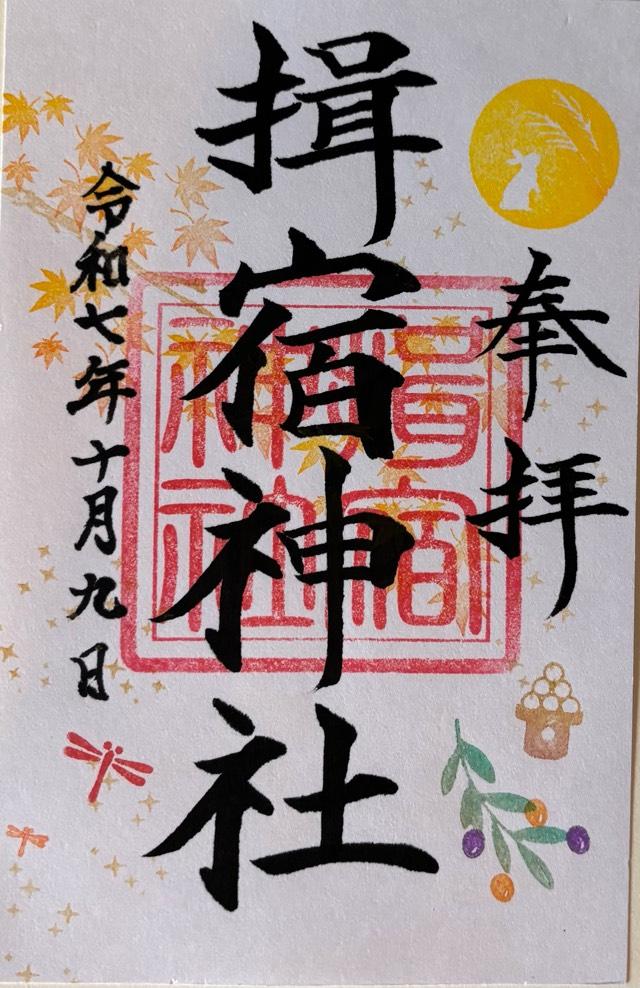 奉拝
揖宿神社
指宿神社
令和七年十月九日